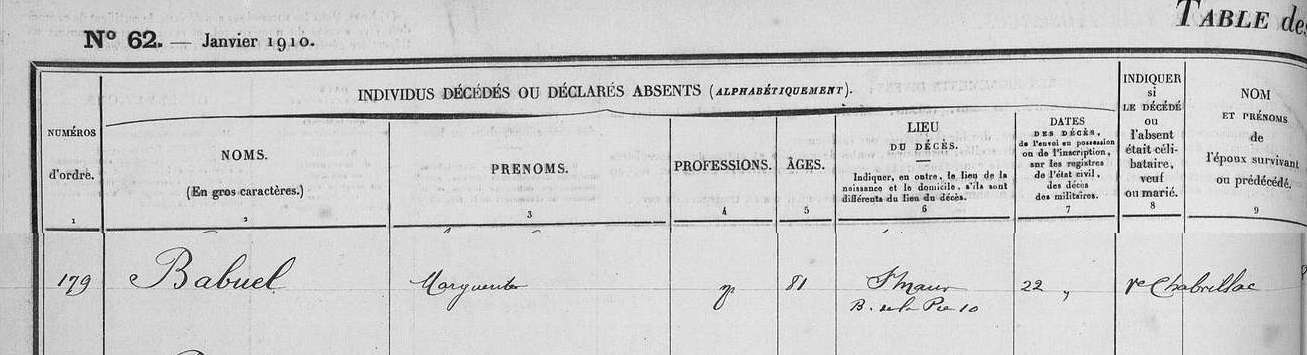 TABLE des
N° 62. — Janvier 1910.
INDIVIDUS DÉCÉDÉS OU DÉCLARÉS ABSENTS (ALPHABÉTIQUEMENT).
NUMÉROS
d'ordre.
1
NOMS.
(En gros caractères.)
2
PRENOMS.
3
PROFESSIONS.
4
ÂGES.
5
LIEU
DU DÉCÈS.
Indiquer, en outre, le lieu de la
naissance et le domicile, s'ils sont
différents du lieu du décès.
6
DATES
DES DÉCÈS,
de l'envoi en possession
ou de l'inscription,
sur les registres
de l'état civil,
des décès
des militaires.
7
INDIQUER
si
LE DÉCÉDÉ
ou
l'absent
était céli-
bataire,
veuf
ou marié.
8
NOM
ET PRÉNOMS
de
l'époux survivant
ou prédécédé.
9
179 Babuel Marguerite 81 St Maur 22 " ve Chabrillac
B. de la Pie 10